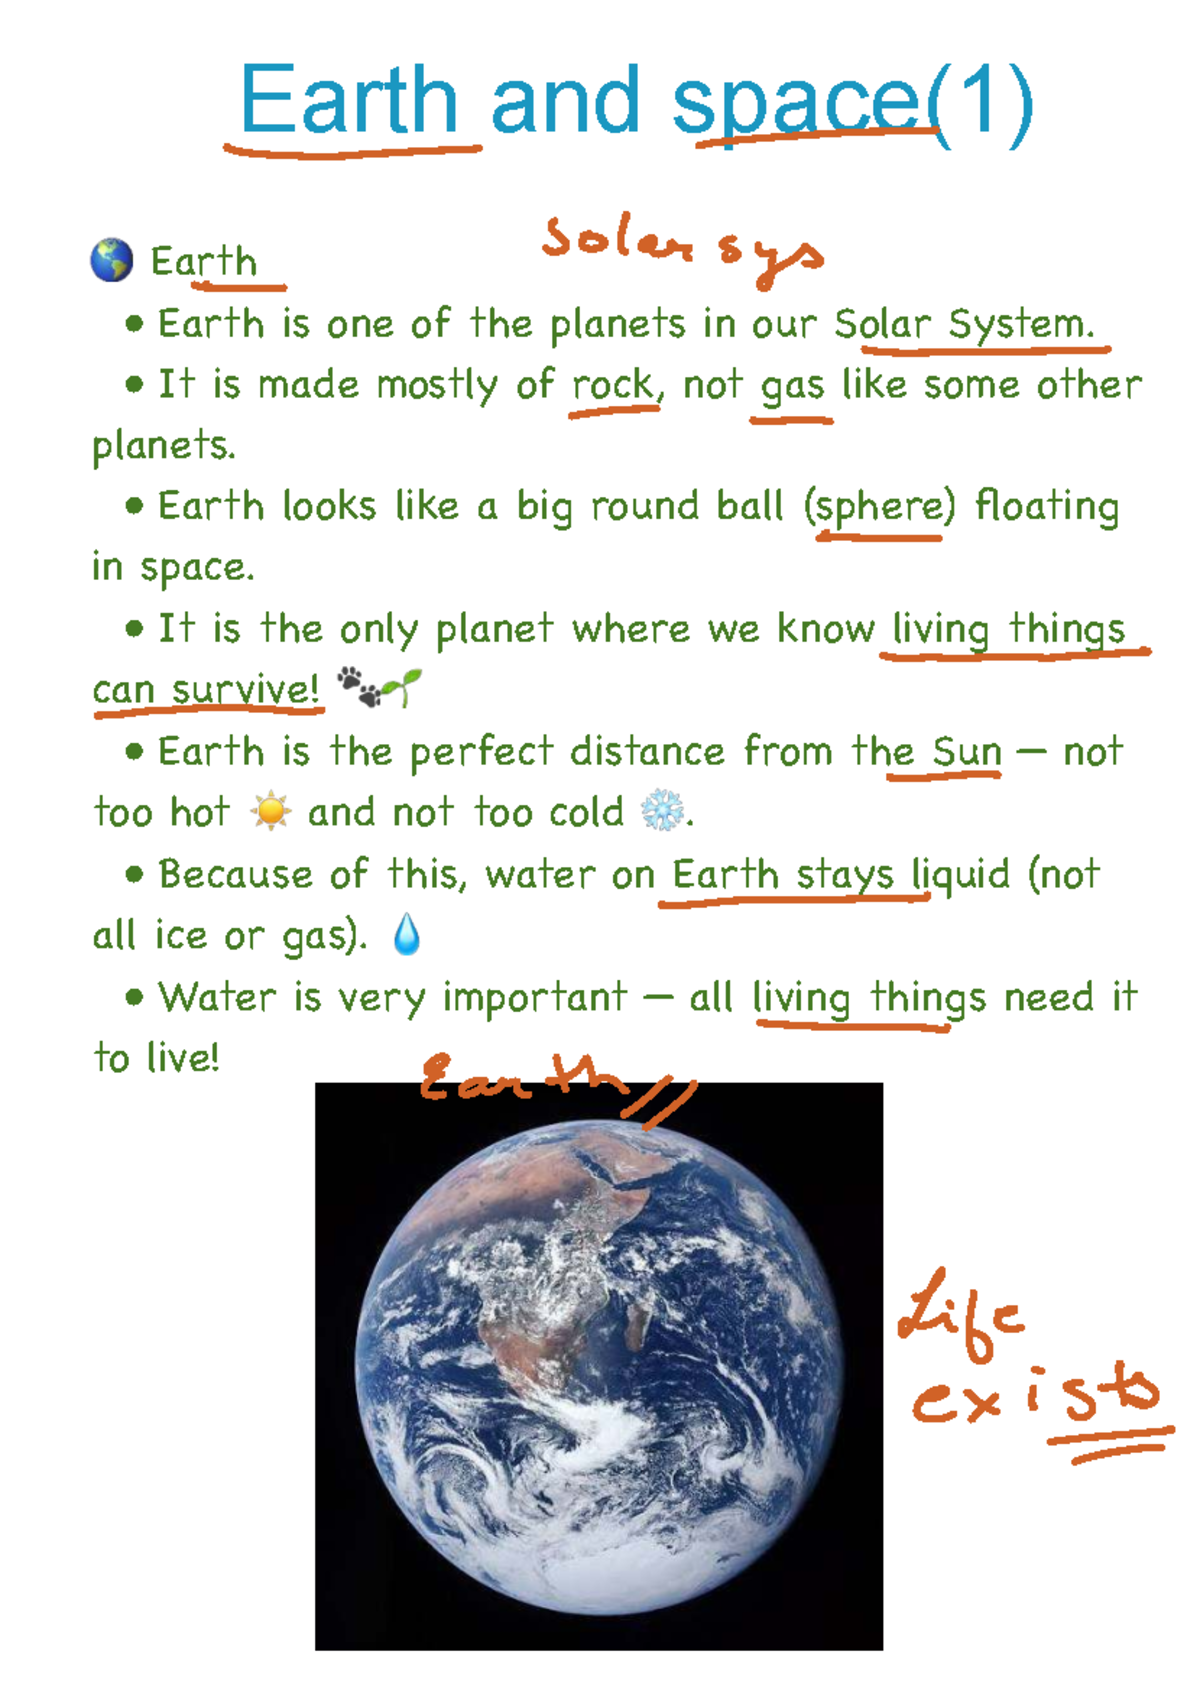 Earth and space(1)
Solar sys
🌎 Earth
• Earth is one of the planets in our Solar System.
• It is made mostly of rock, not gas like some other
planets.
• Earth looks like a big round ball (sphere) floating
in space.
• It is the only planet where we know living things
can survive! 🐾🌱
• Earth is the perfect distance from the Sun — not
too hot ☀️ and not too cold ❄️.
• Because of this, water on Earth stays liquid (not
all ice or gas). 💧
• Water is very important — all living things need it
to live!
Earth
Life
exists